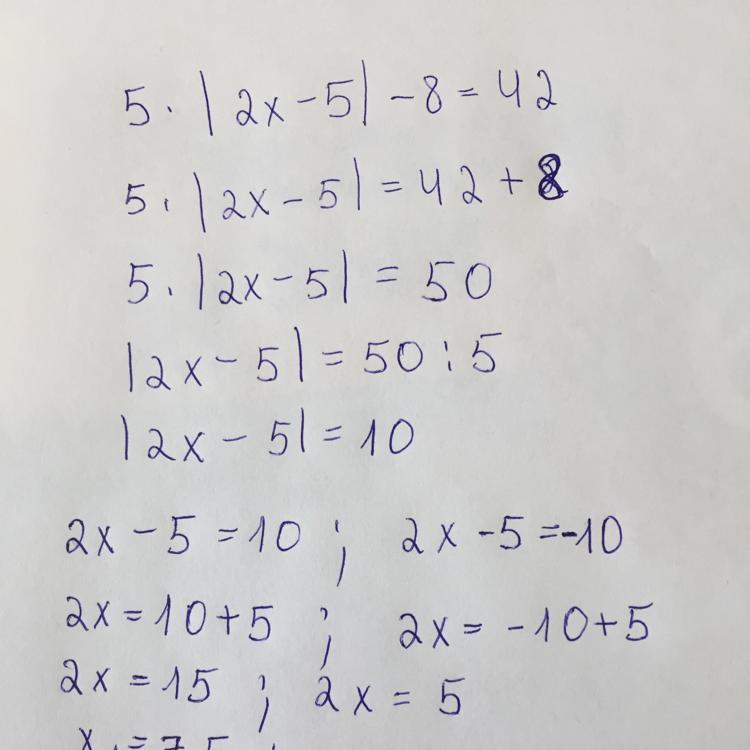 5 · |2x - 5| - 8 = 42
5 · |2x - 5| = 42 + 8
5 · |2x - 5| = 50
|2x - 5| = 50 : 5
|2x - 5| = 10
2x - 5 = 10 ; 2x - 5 = -10
2x = 10 + 5 ; 2x = -10 + 5
2x = 15 ; 2x = 5